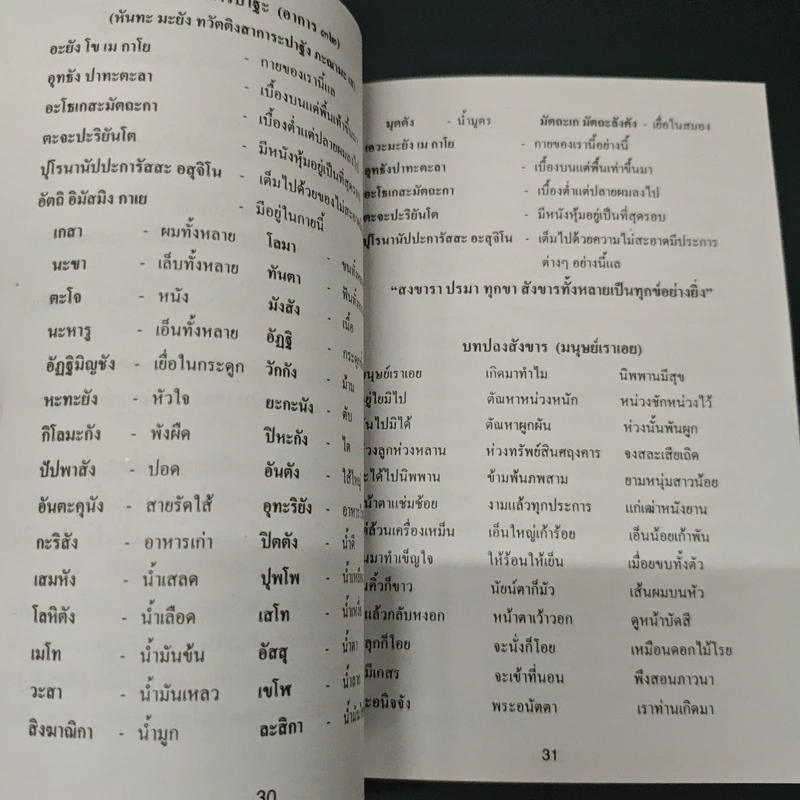 (อาการ ๓๒)
(หันทะ มะยัง ทวัตติงสาการะปาฐัง ภะณามะ เส)
อะยัง โข เม กาโย - กายของเรานี้แล
อุทธัง ปาทะตะลา - เบื้องบนแต่พื้นเท้าขึ้นมา
อะโธเกสะมัตถะกา - เบื้องต่ำแต่ปลายผมลงไป
ตะจะปะริยันโต - มีหนังหุ้มอยู่เป็นที่สุดรอบ
ปุโรนานัปปะการัสสะ อสุจิโน - เต็มไปด้วยของไม่สะอาด
อัตถิ อิมัสมิง กาเย - มีอยู่ในกายนี้
เกสา - ผมทั้งหลาย โลมา
นะขา - เล็บทั้งหลาย ทันตา
ตะโจ - หนัง มังสัง - เนื้อ
นะหารู - เอ็นทั้งหลาย อัฏฐิ
อัฏฐิมิญชัง - เยื่อในกระดูก วักกัง - ม้าม
หะทะยัง - หัวใจ ยะกะนัง - ตับ
กิโลมะกัง - พังผืด ปิหะกัง - ไต
ปัปพาสัง - ปอด อันตัง - ไส้ใหญ่
อันตะคุนัง - สายรัดไส้ อุทะริยัง
กะริสัง - อาหารเก่า ปิตตัง - น้ำดี
เสมหัง - น้ำเสลด ปุพโพ
โลหิตัง - น้ำเลือด เสโท
เมโท - น้ำมันข้น อัสสุ - น้ำตา
วะสา - น้ำมันเหลว เขโฬ
สิงฆาณิกา - น้ำมูก ละสิกา
30
มุตตัง - น้ำมูตร มัตถะเก มัตถะลังคัง - เยื่อในสมอง
เอวะมะยัง เม กาโย - กายของเรานี้อย่างนี้
อุทธังปาทะตะลา - เบื้องบนแต่พื้นเท้าขึ้นมา
อะโธเกสะมัตถะกา - เบื้องต่ำแต่ปลายผมลงไป
ตะจะปะริยันโต - มีหนังหุ้มอยู่เป็นที่สุดรอบ
ปุโรนานัปปะการัสสะ อะสุจิโน - เต็มไปด้วยความไม่สะอาดมีประการ
ต่างๆ อย่างนี้แล
“สงขารา ปรมา ทุกขา สังขารทั้งหลายเป็นทุกข์อย่างยิ่ง”
บทปลงสังขาร (มนุษย์เราเอย)
มนุษย์เราเอย เกิดมาทำไม นิพพานมีสุข
อยู่ใยมิไป ตัณหาหน่วงหนัก หน่วงชักหน่วงไว้
ฉันไปมิได้ ตัณหาผูกผัน ห่วงนั้นพันผูก
ห่วงลูกห่วงหลาน ห่วงทรัพย์สินศฤงคาร จงสละเสียเถิด
จะได้ไปนิพพาน ข้ามพ้นภพสาม ยามหนุ่มสาวน้อย
หน้าตาแช่มช้อย งามแล้วทุกประการ แก่เฒ่าหนังยาน
แต่ล้วนเครื่องเหม็น เอ็นใหญ่เก้าร้อย เอ็นน้อยเก้าพัน
มันมาทำเข็ญใจ ให้ร้อนให้เย็น เมื่อยขบทั้งตัว
ขนคิ้วก็ขาว นัยน์ตาก็มัว เส้นผมบนหัว
ดำแล้วกลับหงอก หน้าตาเว้าวอก ดูหน้าบัดสี
จะลุกก็โอย จะนั่งก็โอย เหมือนดอกไม้โรย
ไม่มีเกสร จะเข้าที่นอน พึงสอนภาวนา
พระอนิจจัง พระอนัตตา เราท่านเกิดมา
31